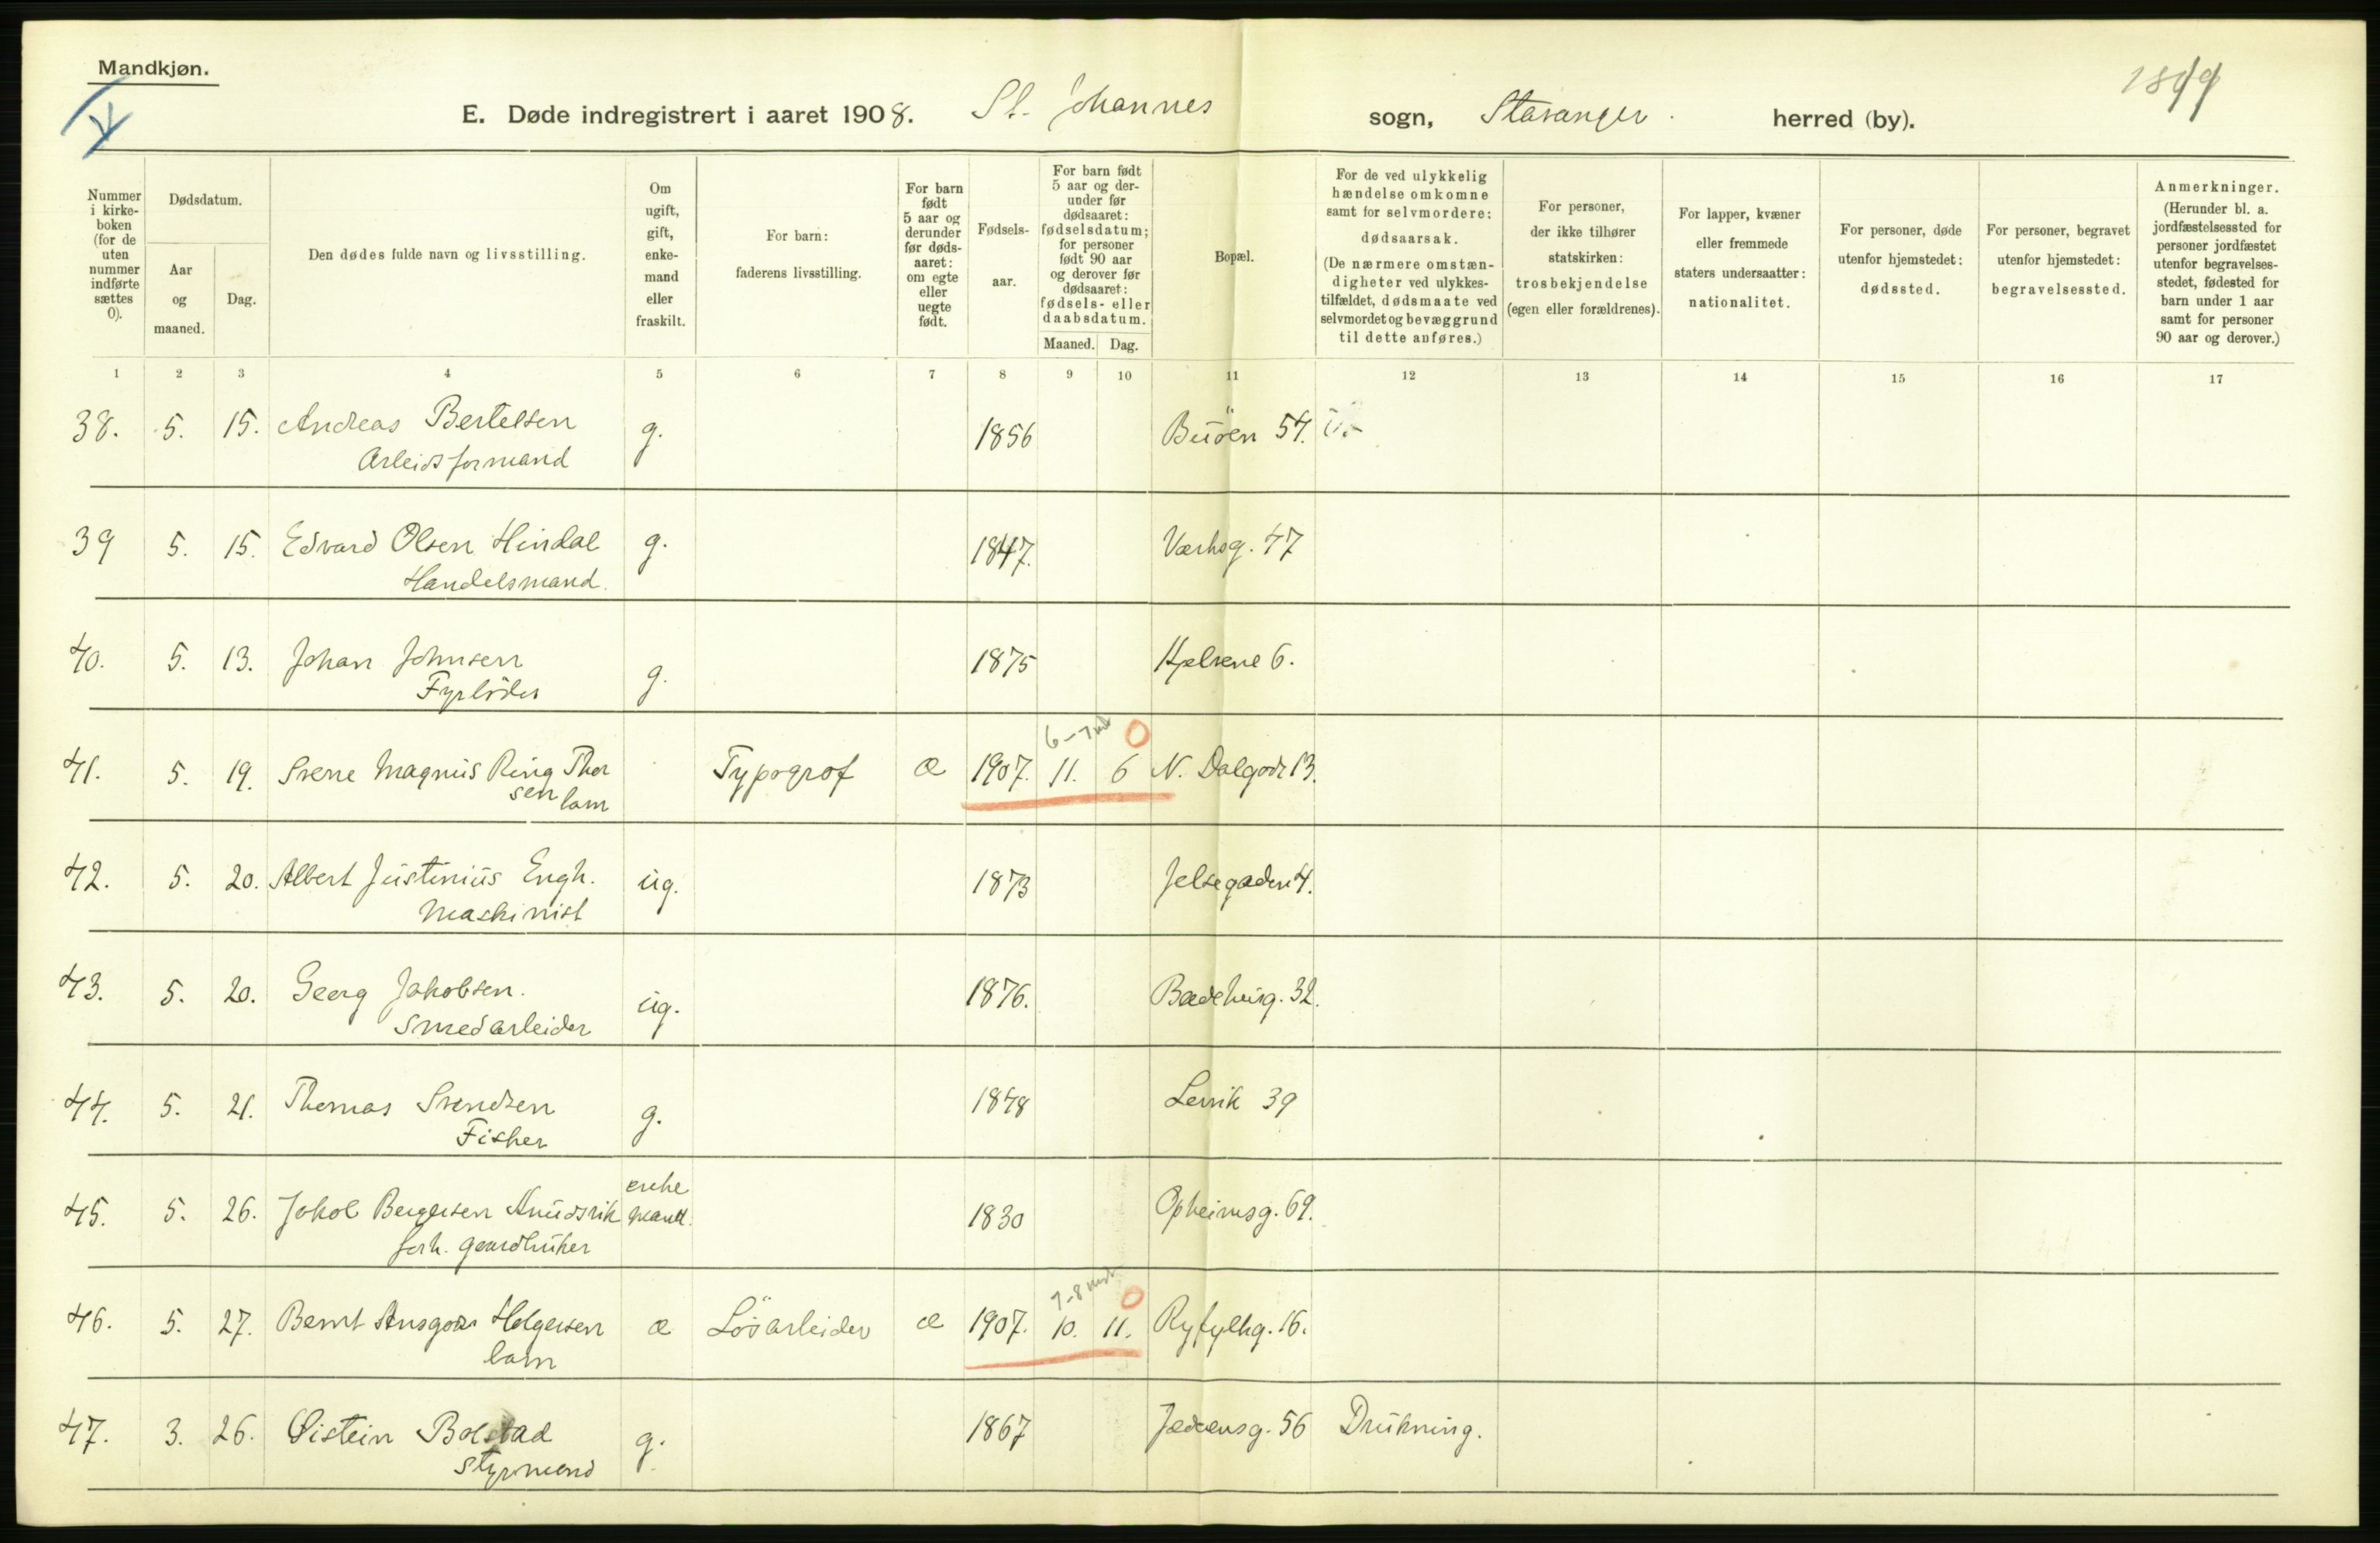 Mandkjøn.
E. Døde indregistrert i aaret 1908. St. Johannes sogn, Stavanger. herred (by).
Nummer i kirke-boken (for de uten nummer indførte sættes 0).
Dødsdatum.
Aar og maaned.
Dag.
Den dødes fulde navn og livsstilling.
Om ugift, gift, enke-mand eller fraskilt.
For barn: faderens livsstilling.
For barn født 5 aar og derunder før døds-aaret: om egte eller uegte født.
Fødsels-aar.
For barn født 5 aar og der-under før dødsaaret: fødselsdatum; for personer født 90 aar og derover før dødsaaret: fødsels- eller daabsdatum.
Maaned. Dag.
Bopæl.
For de ved ulykkelig hændelse omkomne samt for selvmordere: dødsaarsak. (De nærmere omstæn-digheter ved ulykkes-tilfældet, dødsmaate ved selvmordet og bevæggrund til dette anføres.)
For personer, der ikke tilhører statskirken: trosbekjendelse (egen eller forældrenes).
For lapper, kvæner eller fremmede staters undersaatter: nationalitet.
For personer, døde utenfor hjemstedet: dødssted.
For personer, begravet utenfor hjemstedet: begravelsessted.
Anmerkninger. (Herunder bl. a. jordfæstelsessted for personer jordfæstet utenfor begravelses-stedet, fødested for barn under 1 aar samt for personer 90 aar og derover.)
1 2 3 4 5 6 7 8 9 10 11 12 13 14 15 16 17
38. 5. 15. Andreas Bertelsen g. 1856 Buöen 54.
Arbeidsformand
39 5. 15. Edvard Olsen Hindal g. 1847. Værksg. 47
Handelsmand.
40. 5. 13. Johan Johnsen g. 1875 Hjelsene 6.
Fyrböder
6-7 md 0
41. 5. 19. Sverre Magnus Ring Thor Typograf æ 1907. 11. 6 N. Dalgade 13.
sen barn
42. 5. 20. Albert Justinius Engh. ug. 1873 Jelsegaden 4.
Maskinist
43. 5. 20. Georg Jakobsen. ug. 1876. Badehusg. 32.
Smedarbeider
44. 5. 21. Thomas Svendsen g. 1848 Lervik 39
Fisker
45. 5. 26. Jakob Bergersen Knudsvik enke mand. 1830 Opheimsg. 69.
forh. gaardbruker
7-8 mdr 0
46. 5. 27. Bernt Ansgar Holgersen æ Lösarbeider æ 1907. 10. 11. Ryfylkg. 16.
barn
47. 3. 26. Øistein Bolstad g. 1867 Jædernsg. 56 Drukning.
Styrmand